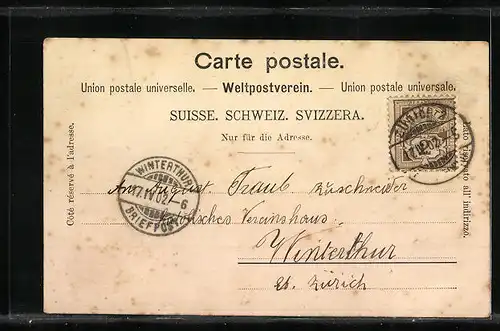 Carte postale.
Union postale universelle. — Weltpostverein. — Union postale universale.
SUISSE. SCHWEIZ. SVIZZERA.
Nur für die Adresse.
Côté réservé à l'adresse.
Lato riservato all' indirizzo.
WINTERTHUR
IV.02.-6
BRIEFPOST
August Traub Zuschneider
Vereinshaus
Winterthur
Ct. Zürich